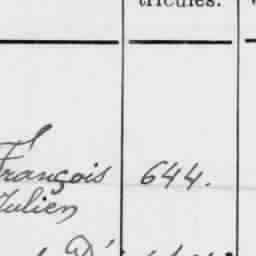 tricules.
François 644.
Julien